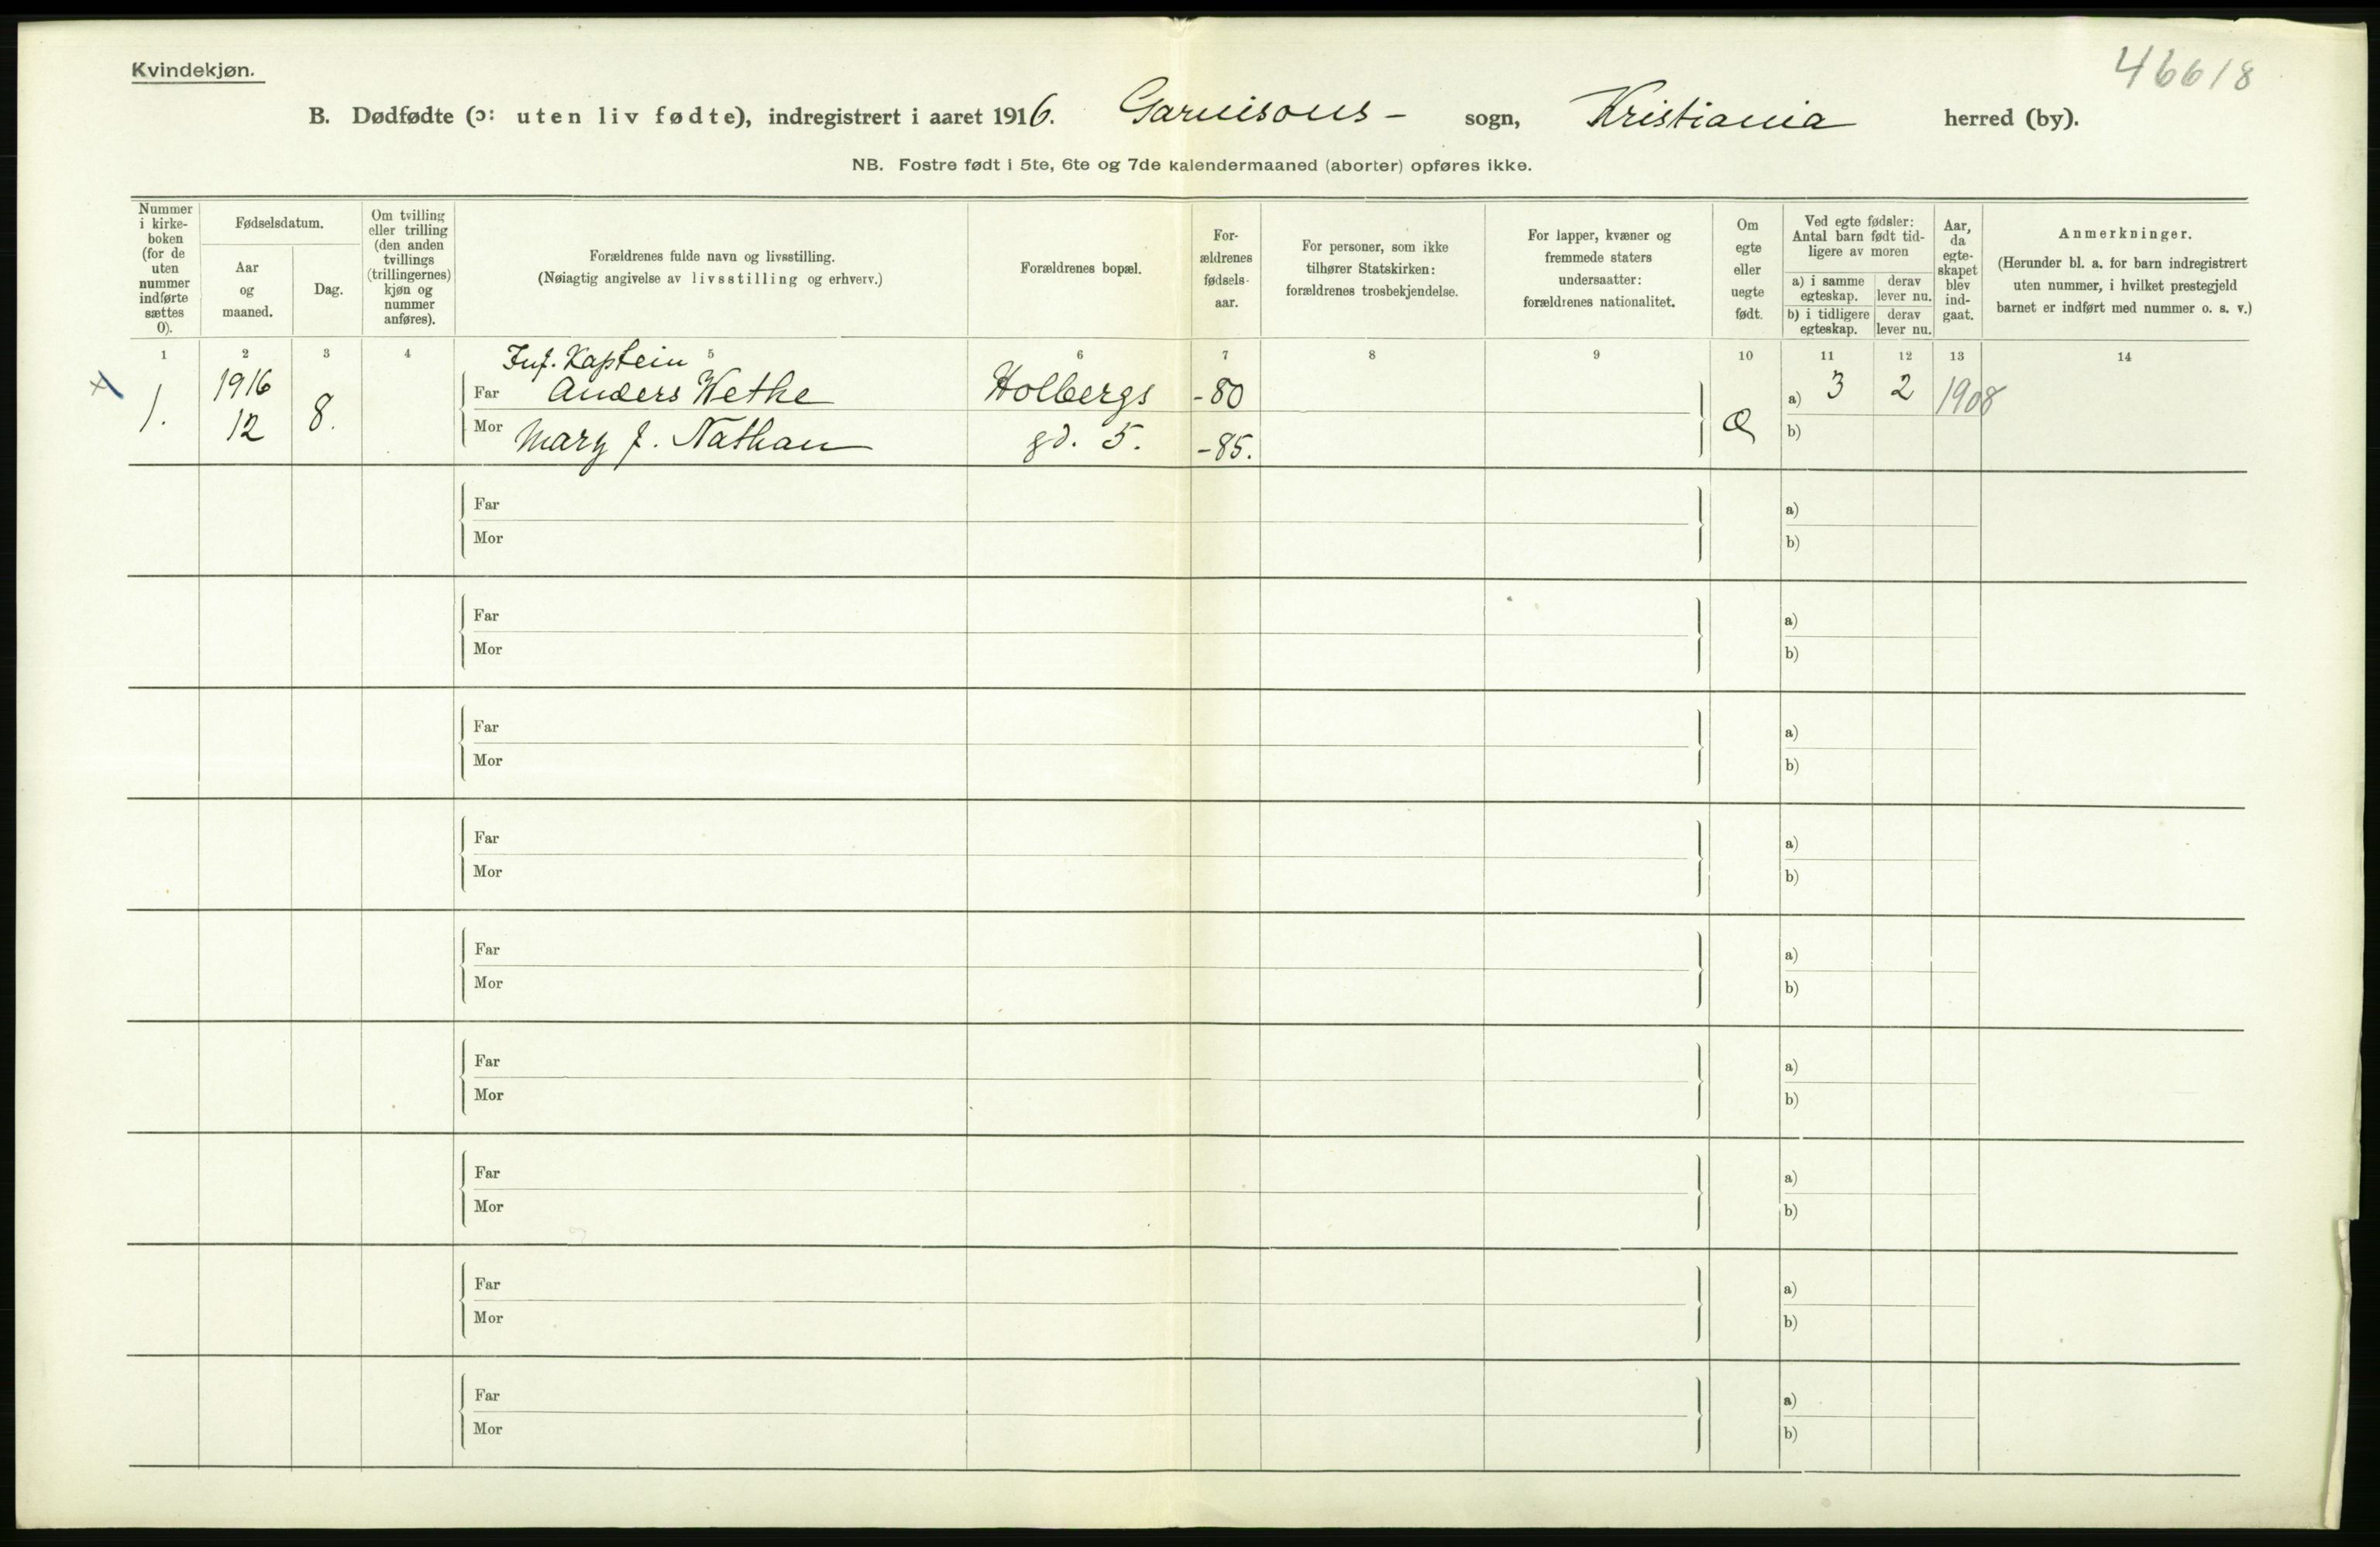 Kvindekjøn.
46618
B. Dødfødte (ɔ: uten liv fødte), indregistrert i aaret 1916. Garnisons - sogn, Kristiania herred (by).
NB. Fostre født i 5te, 6te og 7de kalendermaaned (aborter) opføres ikke.
Nummer
i kirke-
boken
(for de
uten
nummer
indførte
sættes
0).
Fødselsdatum.
Aar
og
maaned.
Dag.
Om tvilling
eller trilling
(den anden
tvillings
(trillingernes)
kjøn og
nummer
anføres).
Forældrenes fulde navn og livsstilling.
(Nøiagtig angivelse av livsstilling og erhverv.)
Forældrenes bopæl.
For-
ældrenes
fødsels-
aar.
For personer, som ikke
tilhører Statskirken:
forældrenes trosbekjendelse.
For lapper, kvæner og
fremmede staters
undersaatter:
forældrenes nationalitet.
Om
egte
eller
uegte
født.
Ved egte fødsler:
Antal barn født tid-
ligere av moren
a) i samme
egteskap.
derav
lever nu.
b) i tidligere
egteskap.
derav
lever nu.
Aar,
da
egte-
skapet
blev
ind-
gaat.
Anmerkninger.
(Herunder bl. a. for barn indregistrert
uten nummer, i hvilket prestegjeld
barnet er indført med nummer o. s. v.)
1 2 3 4 5 6 7 8 9 10 11 12 13 14
Inf. Kaptein
1. 1916 8. Far Anders Wethe Holbergs -80 a) 3 2 1908
12 Mor Mary f. Nathan gd. 5. -85. b)
Far a)
Mor b)
Far a)
Mor b)
Far a)
Mor b)
Far a)
Mor b)
Far a)
Mor b)
Far a)
Mor b)
Far a)
Mor b)
Far a)
Mor b)
Far a)
Mor b)